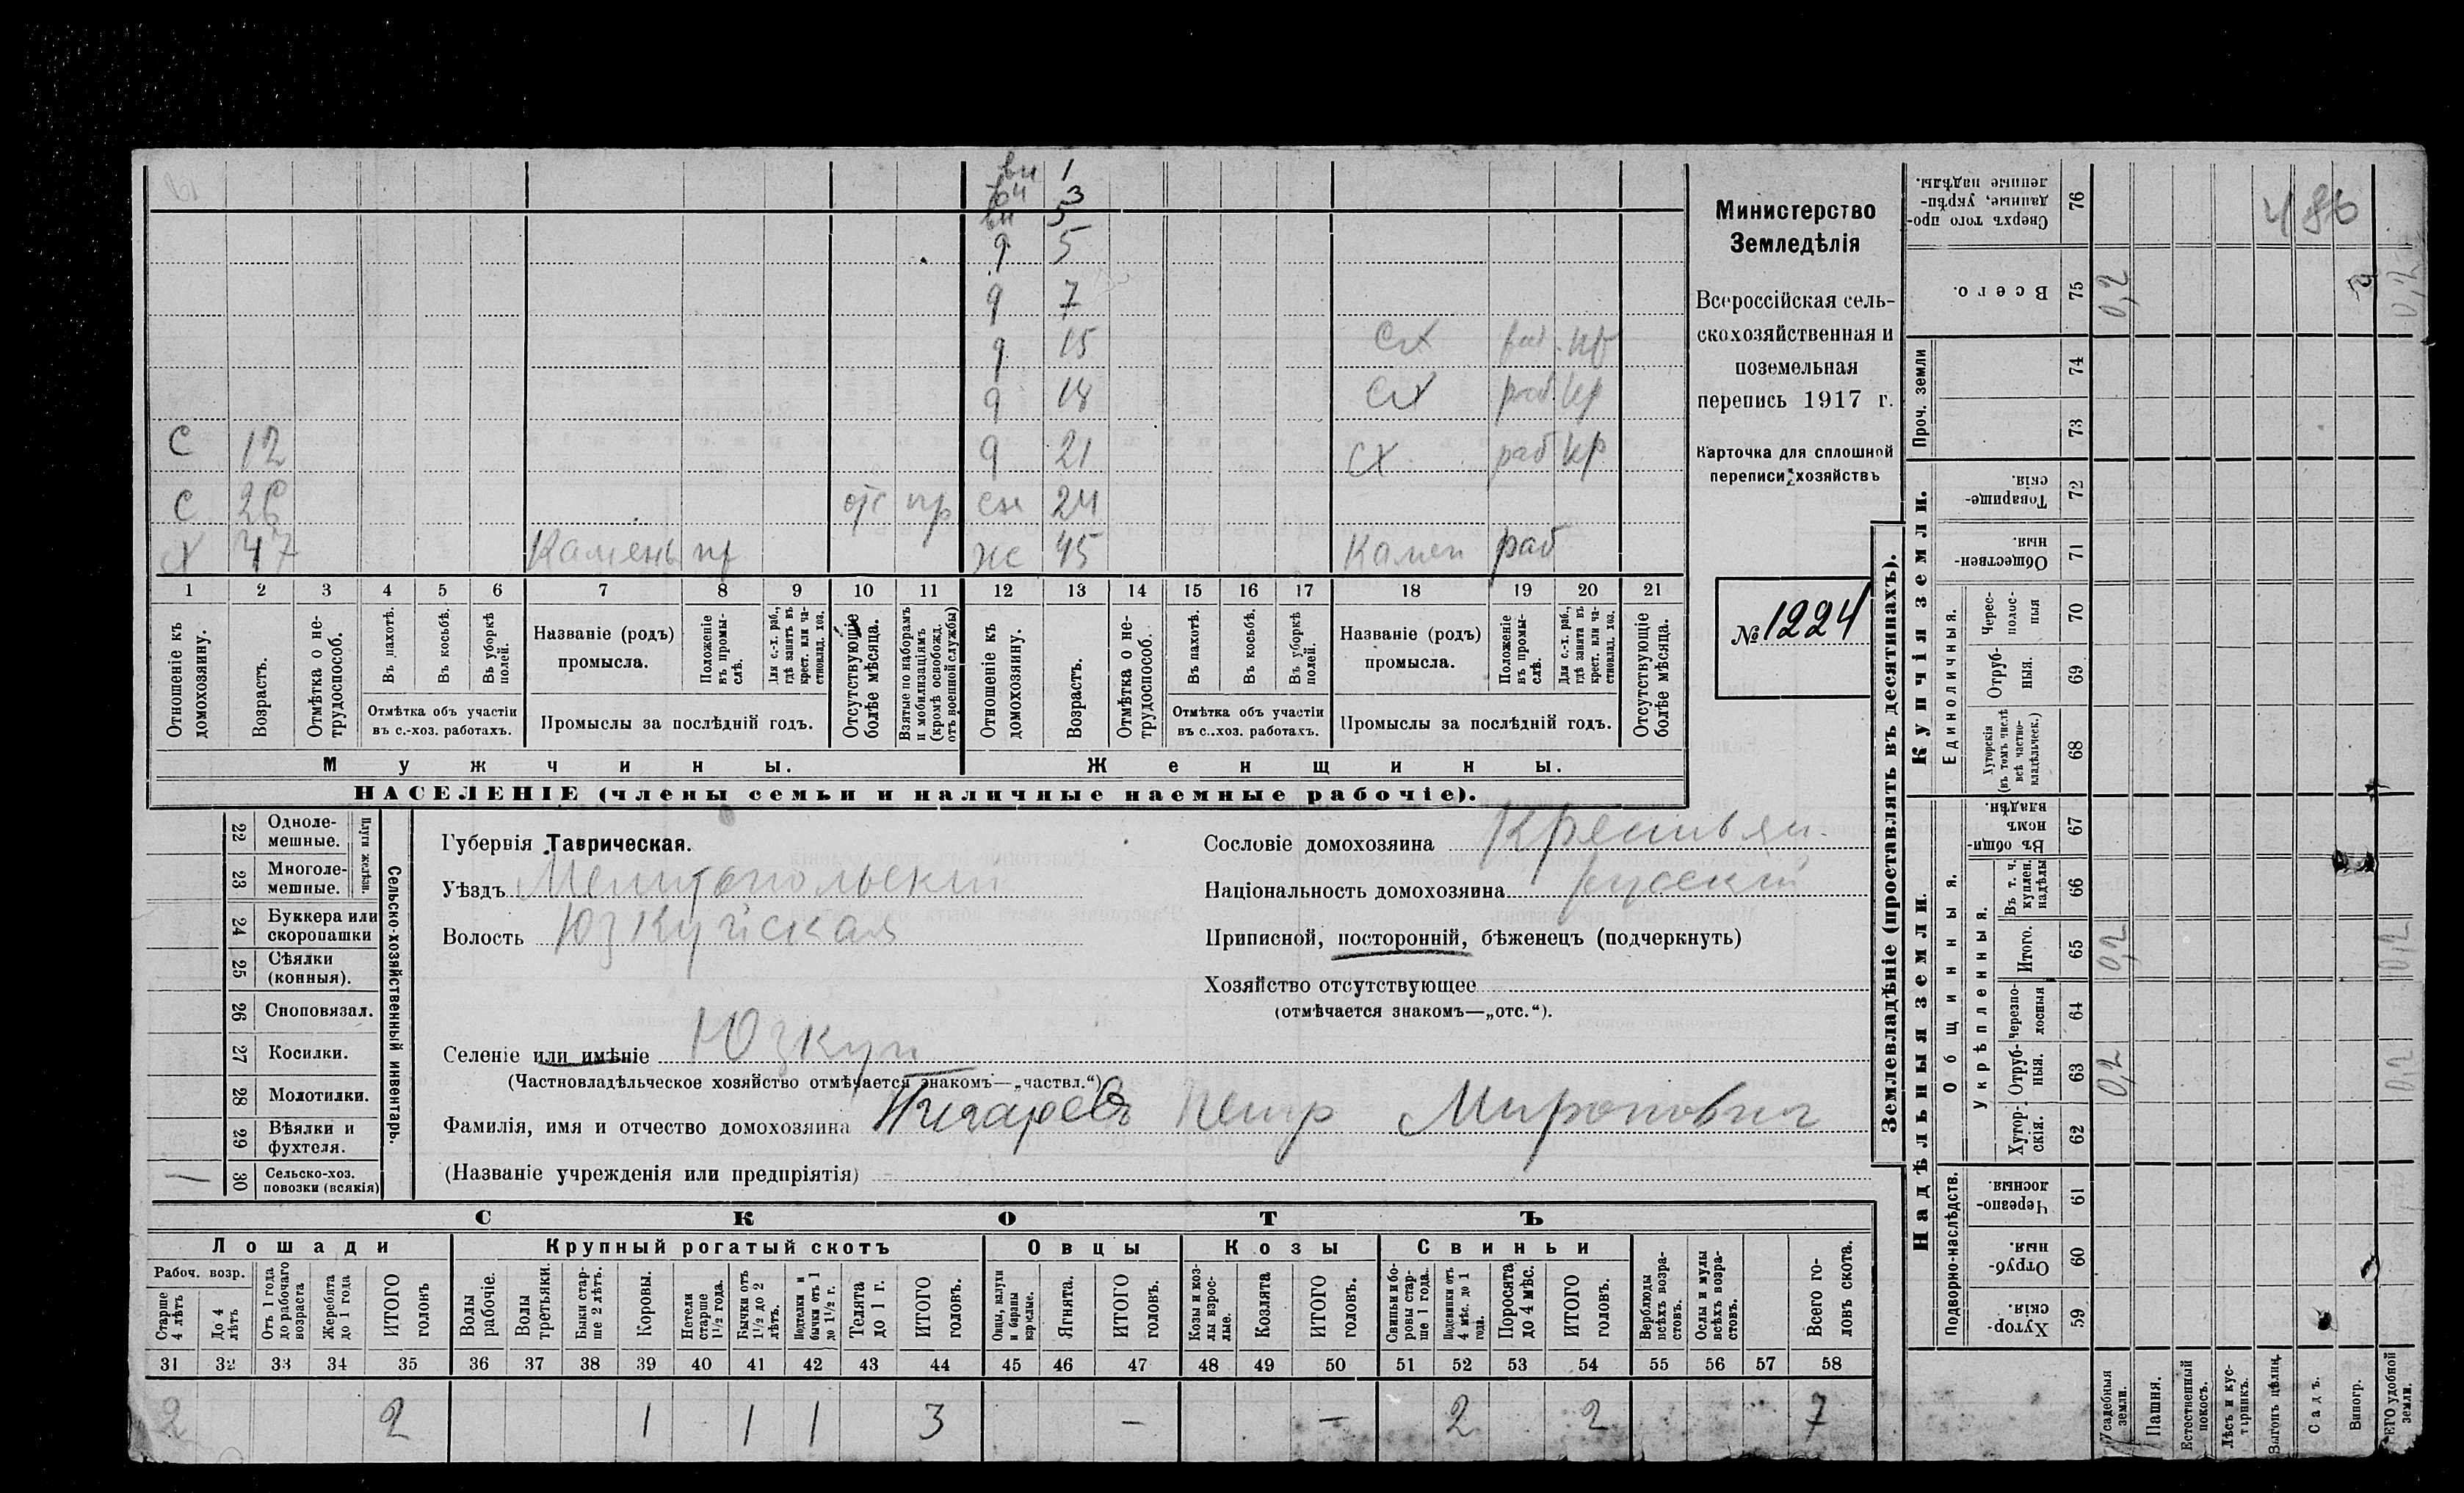 вн 1
вн 3
вн 5
д 5
д 7
д 15 сх раб кр
д 18 сх раб кр
с 12 д 21 сх раб кр
с 26 отс пр сн 24
х 47 Камень жс 45 Камен раб
1 2 3 4 5 6 7 8 9 10 11 12 13 14 15 16 17 18 19 20 21
Отношеніе къ домохозяину.
Возрастъ.
Отмѣтка о нетрудоспособ.
Въ пахотѣ.
Въ косьбѣ.
Въ уборкѣ полей.
Отмѣтка объ участіи въ с.-хоз. работахъ.
Названіе (родъ) промысла.
Положеніе въ промыслѣ.
Для с.-х. раб., гдѣ занятъ въ крест. или частновлад. хоз.
Промыслы за послѣдній годъ.
Отсутствующіе болѣе мѣсяца.
Взятые по наборамъ и мобилизаціямъ (кромѣ освобожд. отъ военной службы)
Отношеніе къ домохозяину.
Возрастъ.
Отмѣтка о нетрудоспособ.
Въ пахотѣ.
Въ косьбѣ.
Въ уборкѣ полей.
Отмѣтка объ участіи въ с..хоз. работахъ.
Названіе (родъ) промысла.
Положеніе въ промыслѣ.
Для с.-х. раб., гдѣ занята въ крест. или частновлад. хоз.
Промыслы за послѣдній годъ.
Отсутствующіе болѣе мѣсяца.
Мужчины. Женщины.
НАСЕЛЕНІЕ (члены семьи и наличные наемные рабочіе).
Министерство
Земледѣлія
Всероссійская сель-
скохозяйственная и
поземельная
перепись 1917 г.
Карточка для сплошной
переписи хозяйствъ
№ 1224
22 Одноле-мешные.
23 Многоле-мешные.
Плуги желѣзн.
24 Буккера или скоропашки
25 Сѣялки (конныя).
26 Сноповязал.
27 Косилки.
28 Молотилки.
29 Вѣялки и фухтеля.
30 Сельско-хоз. повозки (всякія)
Сельско-хозяйственный инвентарь.
Губернія Таврическая.
Уѣздъ Мелитопольскій
Волость Юзкуйская
Селеніе или имѣніе Юзкуи
(Частновладѣльческое хозяйство отмѣчается знакомъ—„частвл.“)
Фамилія, имя и отчество домохозяина Петр Миронович
(Названіе учрежденія или предпріятія)
Сословіе домохозяина Крестьян.
Національность домохозяина русскій
Приписной, посторонній, бѣженецъ (подчеркнуть)
Хозяйство отсутствующее
(отмѣчается знакомъ—„отс.“).
СКОТЪ
Лошади Крупный рогатый скотъ Овцы Козы Свиньи
Рабоч. возр.
Старше 4 лѣтъ
До 4 лѣтъ
Отъ 1 года до рабочаго возраста
Жеребята до 1 года
ИТОГО головъ
Волы рабочіе.
Волы третьяки.
Быки старше 2 лѣтъ.
Коровы.
Нетели старше 1½ года.
Бычки отъ 1½ до 2 лѣтъ.
Подтелки и бычки отъ 1 до 1½ г.
Телята до 1 г.
ИТОГО головъ.
Овцы, валухи и бараны взрослые.
Ягнята.
ИТОГО головъ.
Козы и козлы взрослые.
Козлята
ИТОГО головъ.
Свиньи и боровы старше 1 года.
Подсвинки отъ 4 мѣс. до 1 года.
Поросята до 4 мѣс.
ИТОГО головъ.
Верблюды всѣхъ возрастовъ.
Ослы и мулы всѣхъ возрастовъ.
Всего головъ скота.
31 32 33 34 35 36 37 38 39 40 41 42 43 44 45 46 47 48 49 50 51 52 53 54 55 56 57 58
2 2 1 1 1 3 — — 2 2 7
Землевладѣніе (проставлять въ десятинахъ).
Надѣльныя земли. Купчія земли.
Подворно-наслѣдств.
Хуторскія 59
Отрубныя. 60
Черезполосныя. 61
Общинныя.
Укрѣпленныя.
Хуторскія. 62
Отрубныя. 63 0,2 0,2
Черезполосныя 64
Итого. 65 0,2 0,2
Въ т. ч. куплен. надѣлы 66
Въ общинномъ владѣн. 67
Единоличныя.
Хуторскія (въ томъ числѣ всѣ частновладѣльческ.) 68
Отрубныя. 69
Чересполосныя 70
Общественныя 71
Товарищескія. 72
Проч. земли
73 74
Всего. 75 0,2 0,2
Сверхъ того проданные, укрѣпленные надѣлы. 76
486
Усадебныя земли.
Пашня.
Естественный покосъ.
Лѣсъ и кустарникъ.
Выгонъ цѣлин.
Садъ.
Виногр.
ЕГО удобной земли.